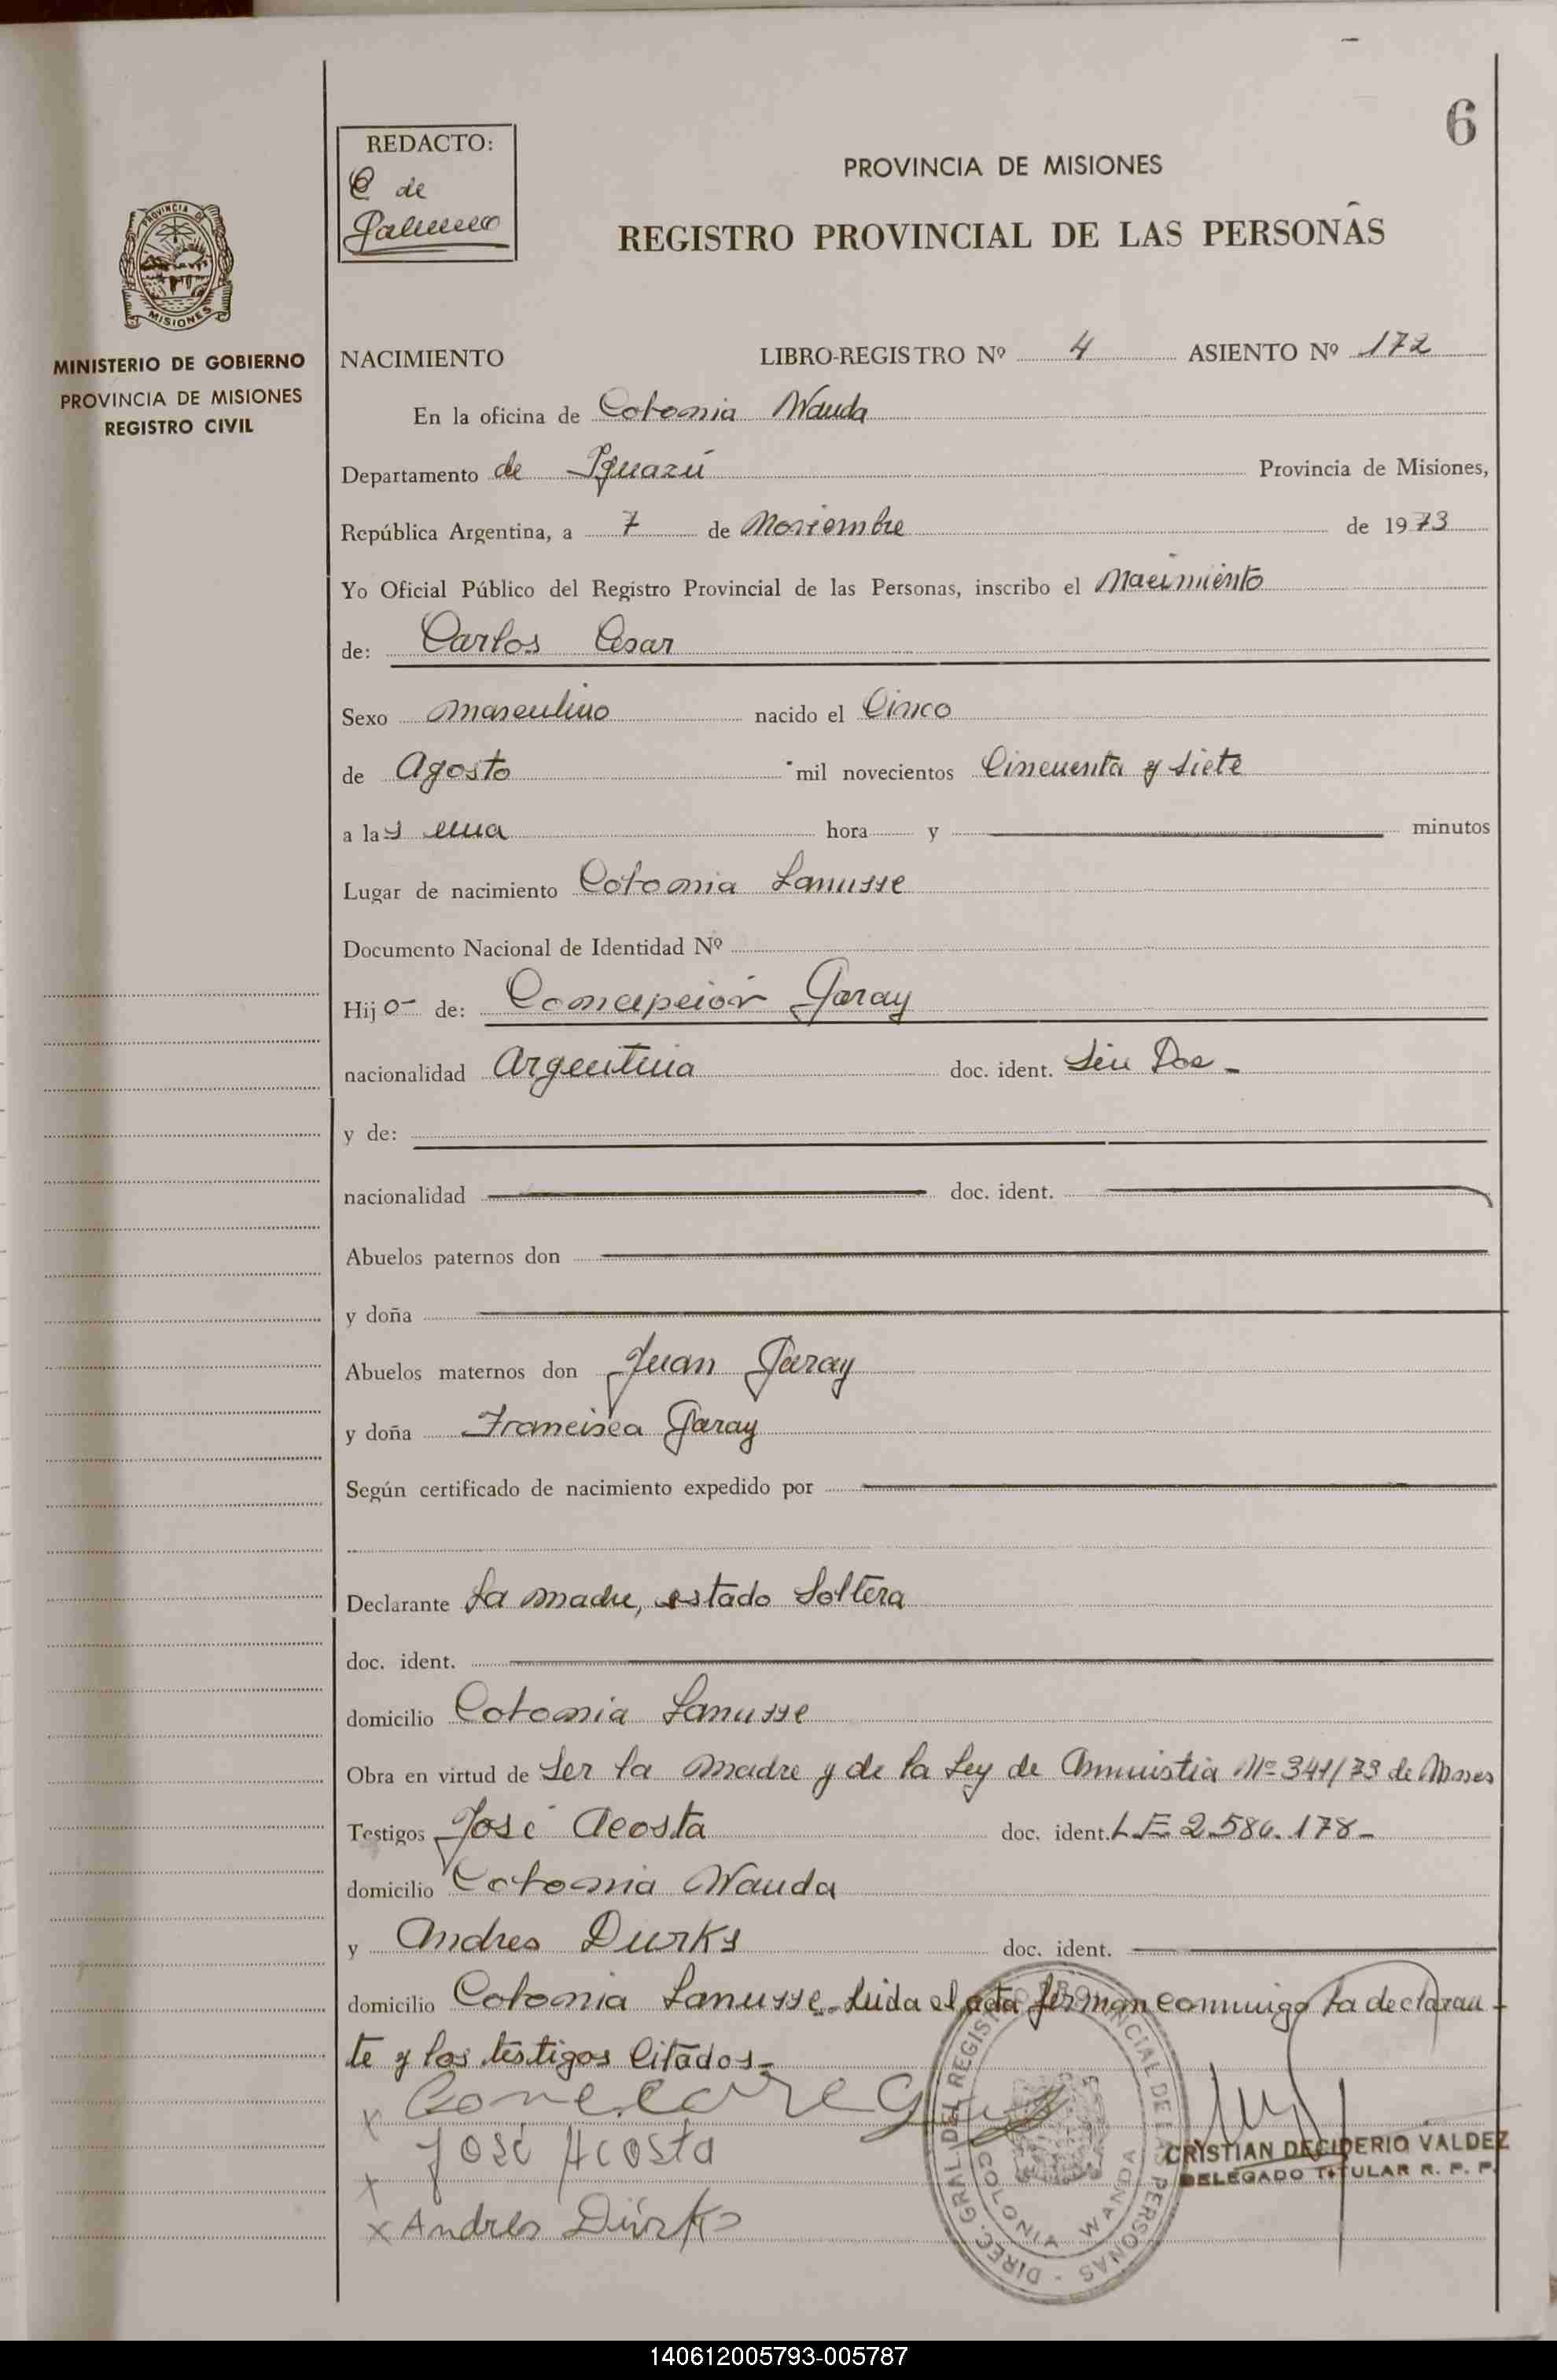 6
REDACTO:
C de
PROVINCIA DE MISIONES
REGISTRO PROVINCIAL DE LAS PERSONAS
PROVINCIA DE
MISIONES
MINISTERIO DE GOBIERNO
PROVINCIA DE MISIONES
REGISTRO CIVIL
NACIMIENTO LIBRO-REGISTRO Nº 4 ASIENTO Nº 172
En la oficina de Colonia Wanda
Departamento de Iguazú Provincia de Misiones,
República Argentina, a 7 de Noviembre de 1973
Yo Oficial Público del Registro Provincial de las Personas, inscribo el Nacimiento
de: Carlos Cesar
Sexo masculino nacido el Cinco
de Agosto mil novecientos Cincuenta y siete
a las una hora y minutos
Lugar de nacimiento Colonia Lanusse
Documento Nacional de Identidad Nº
Hijo- de: Concepción Garay
nacionalidad Argentina doc. ident. Sin Doc-
y de:
nacionalidad doc. ident.
Abuelos paternos don
y doña
Abuelos maternos don Juan Garay
y doña Francisca Garay
Según certificado de nacimiento expedido por
Declarante La madre, estado Soltera
doc. ident.
domicilio Colonia Lanusse
Obra en virtud de Ser la madre y de la Ley de Amnistia Nº 341/73 de Mnes
Testigos José Acosta doc. ident. LE 2.584.178-
domicilio Colonia Wanda
y Andres Durks doc. ident.
domicilio Colonia Lanusse.- Leida el acta firman conmigo la declaran-
te y los testigos Citados-
x
x José Acosta
x Andres Dürks
DIREC. GRAL. DEL REGISTRO PROVINCIAL DE LAS PERSONAS -
COLONIA WANDA
CRYSTIAN DECIDERIO VALDEZ
DELEGADO TITULAR R. P. P.
140612005793-005787